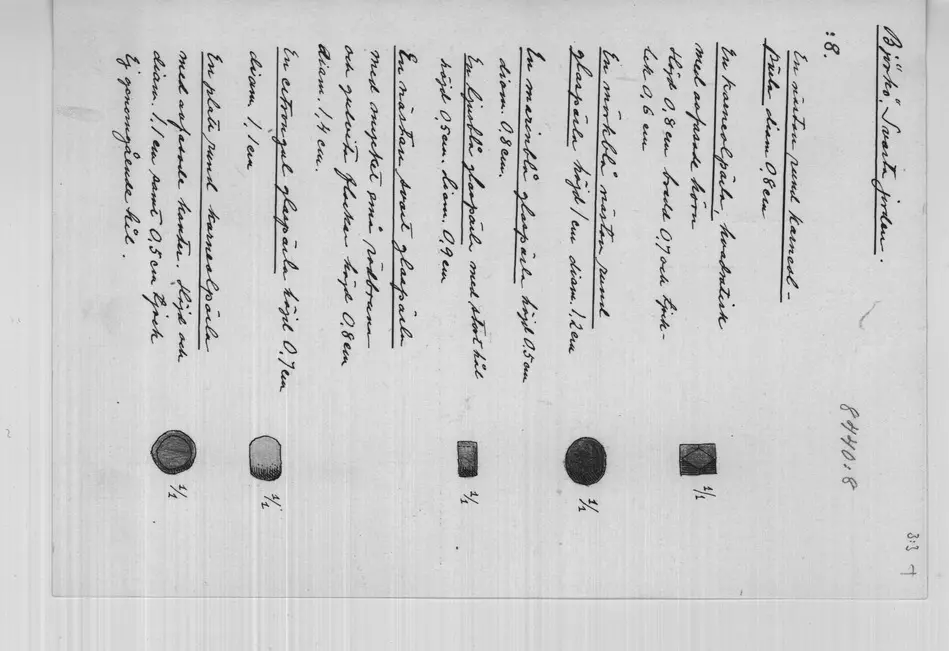 Björkö. Svarta jorden.
8440:8
3:3
:8.
En nästan rund karneol-
pärla diam 0,8 cm
En karneolpärla, kvadratisk
med avfasade hörn
Höjd 0,8 cm bredd 0,7 och tjock-
lek 0,6 cm
1/1
En mörkblå nästan rund
glaspärla höjd 1 cm diam. 1,2 cm
1/1
En marinblå glaspärla höjd 0,5 cm
diam. 0,8 cm.
En ljusblå glaspärla med stort hål
höjd 0,5 cm. diam. 0,9 cm
1/1
En nästan svart glaspärla
med mycket små rödbruna
och gulvita fläckar höjd 0,8 cm
diam. 1,4 cm.
En citrongul glaspärla höjd 0,7 cm
diam. 1,1 cm
1/1
En platt rund karneolpärla
med avfasade kanter. Höjd och
diam. 1,1 cm samt 0,5 cm tjock
Ej genomgående hål.
1/1